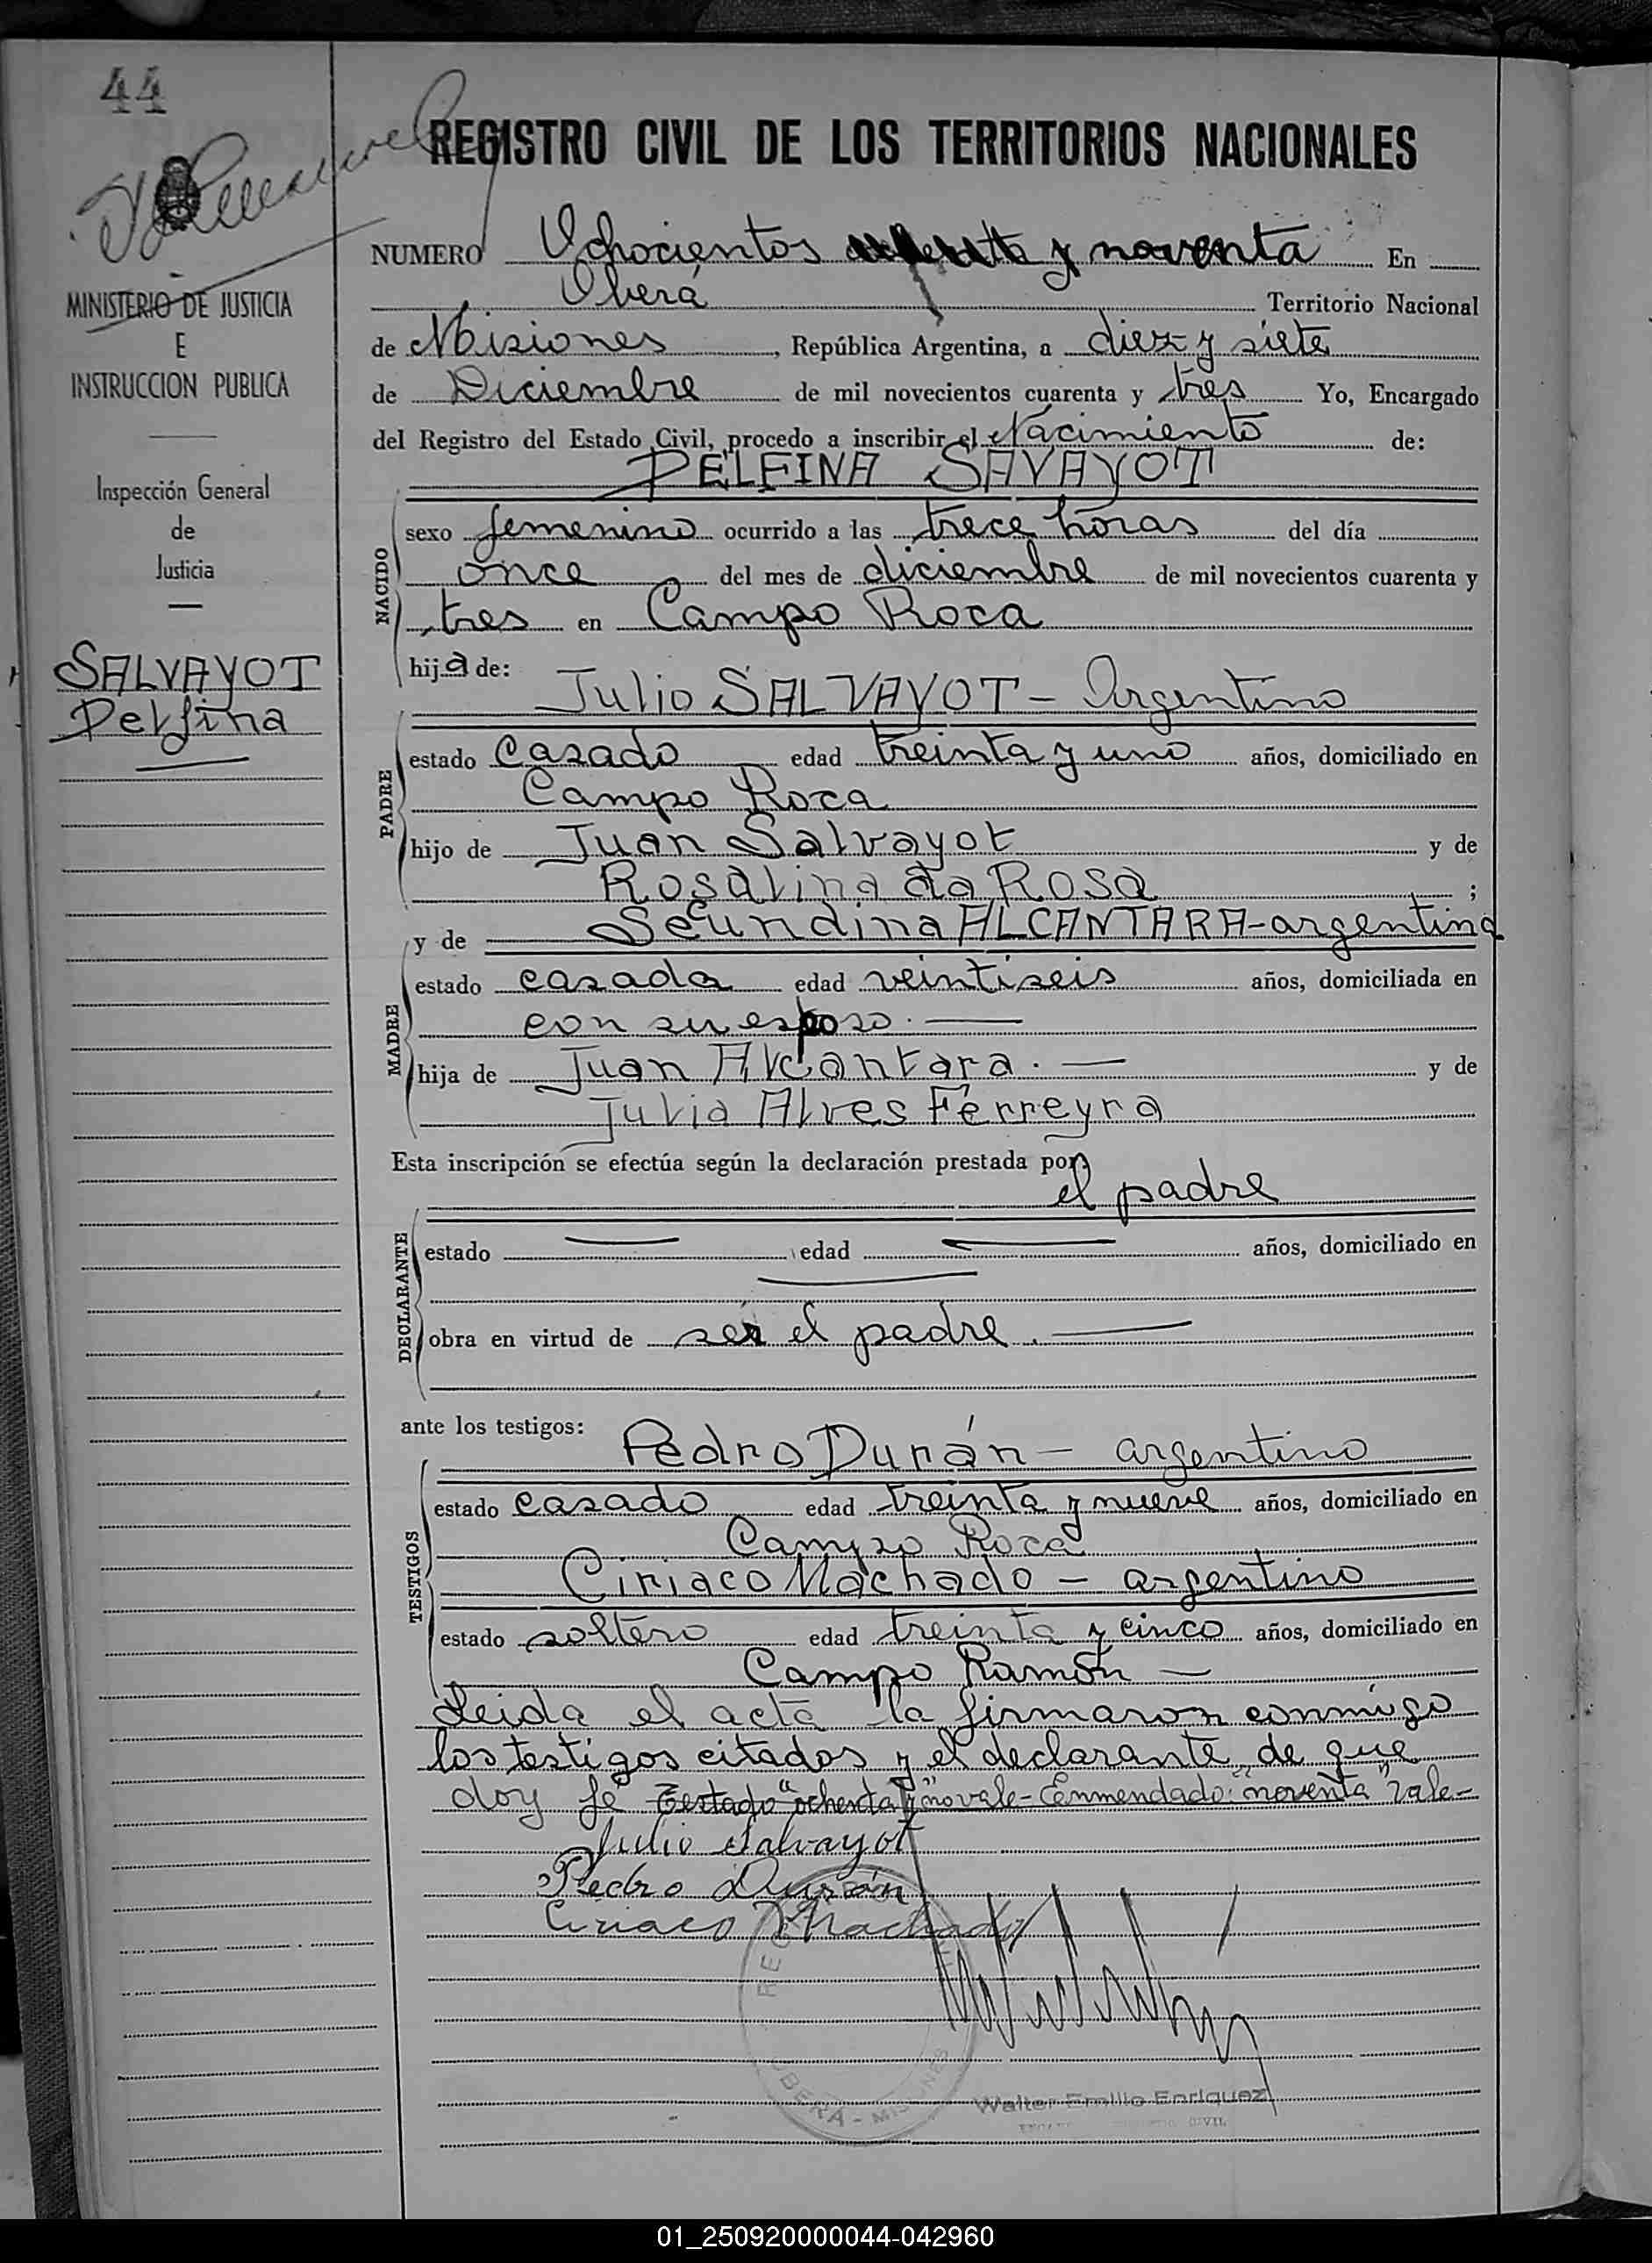 44
REGISTRO CIVIL DE LOS TERRITORIOS NACIONALES
MINISTERIO DE JUSTICIA
E
INSTRUCCION PUBLICA
Inspección General
de
Justicia
SALVAYOT
Delfina
NUMERO Ochocientos y noventa En
Oberá Territorio Nacional
de Misiones, República Argentina, a diez y siete
de Diciembre de mil novecientos cuarenta y tres Yo, Encargado
del Registro del Estado Civil, procedo a inscribir el Nacimiento de:
DELFINA SAVAYOT
NACIDO
sexo femenino ocurrido a las trece horas del día
once del mes de diciembre de mil novecientos cuarenta y
tres en Campo Roca
hija de:
Julio SALVAYOT - Argentino
PADRE
estado Casado edad treinta y uno años, domiciliado en
Campo Roca
hijo de Juan Salvayot y de
Rosalina da Rosa ;
y de Secundina ALCANTARA-argentina
MADRE
estado casada edad veintiseis años, domiciliada en
con su esposo. —
hija de Juan Alcantara. — y de
Julia Alves Ferreyra
Esta inscripción se efectúa según la declaración prestada por
el padre
DECLARANTE
estado — edad — años, domiciliado en
—
obra en virtud de ser el padre. —
ante los testigos:
Pedro Durán - argentino
TESTIGOS
estado casado edad treinta y nueve años, domiciliado en
Campo Roca
Ciriaco Machado - argentino
estado soltero edad treinta y cinco años, domiciliado en
Campo Ramón —
Leida el acta la firmaron conmigo
los testigos citados y el declarante de que
doy fe Testado "ochenta y" no vale - Enmendado: "noventa" vale-
Julio Salvayot
Pedro Durán
Ciriaco Machado
OBERÁ - MISIONES
Walter Emilio Enriquez
CIVIL
01_250920000044-042960